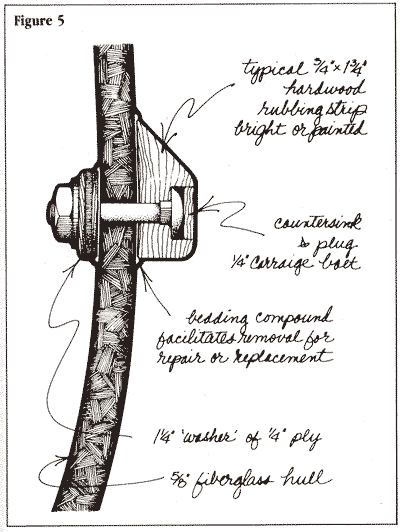 Figure 5
typical 3/4" × 1 3/4"
hardwood
rubbing strip
bright or painted
countersink
& plug
1/4" carraige bolt
bedding compound
facilitates removal for
repair or replacement
1 1/4" 'washer' of 1/4" ply
5/8" fiberglass hull